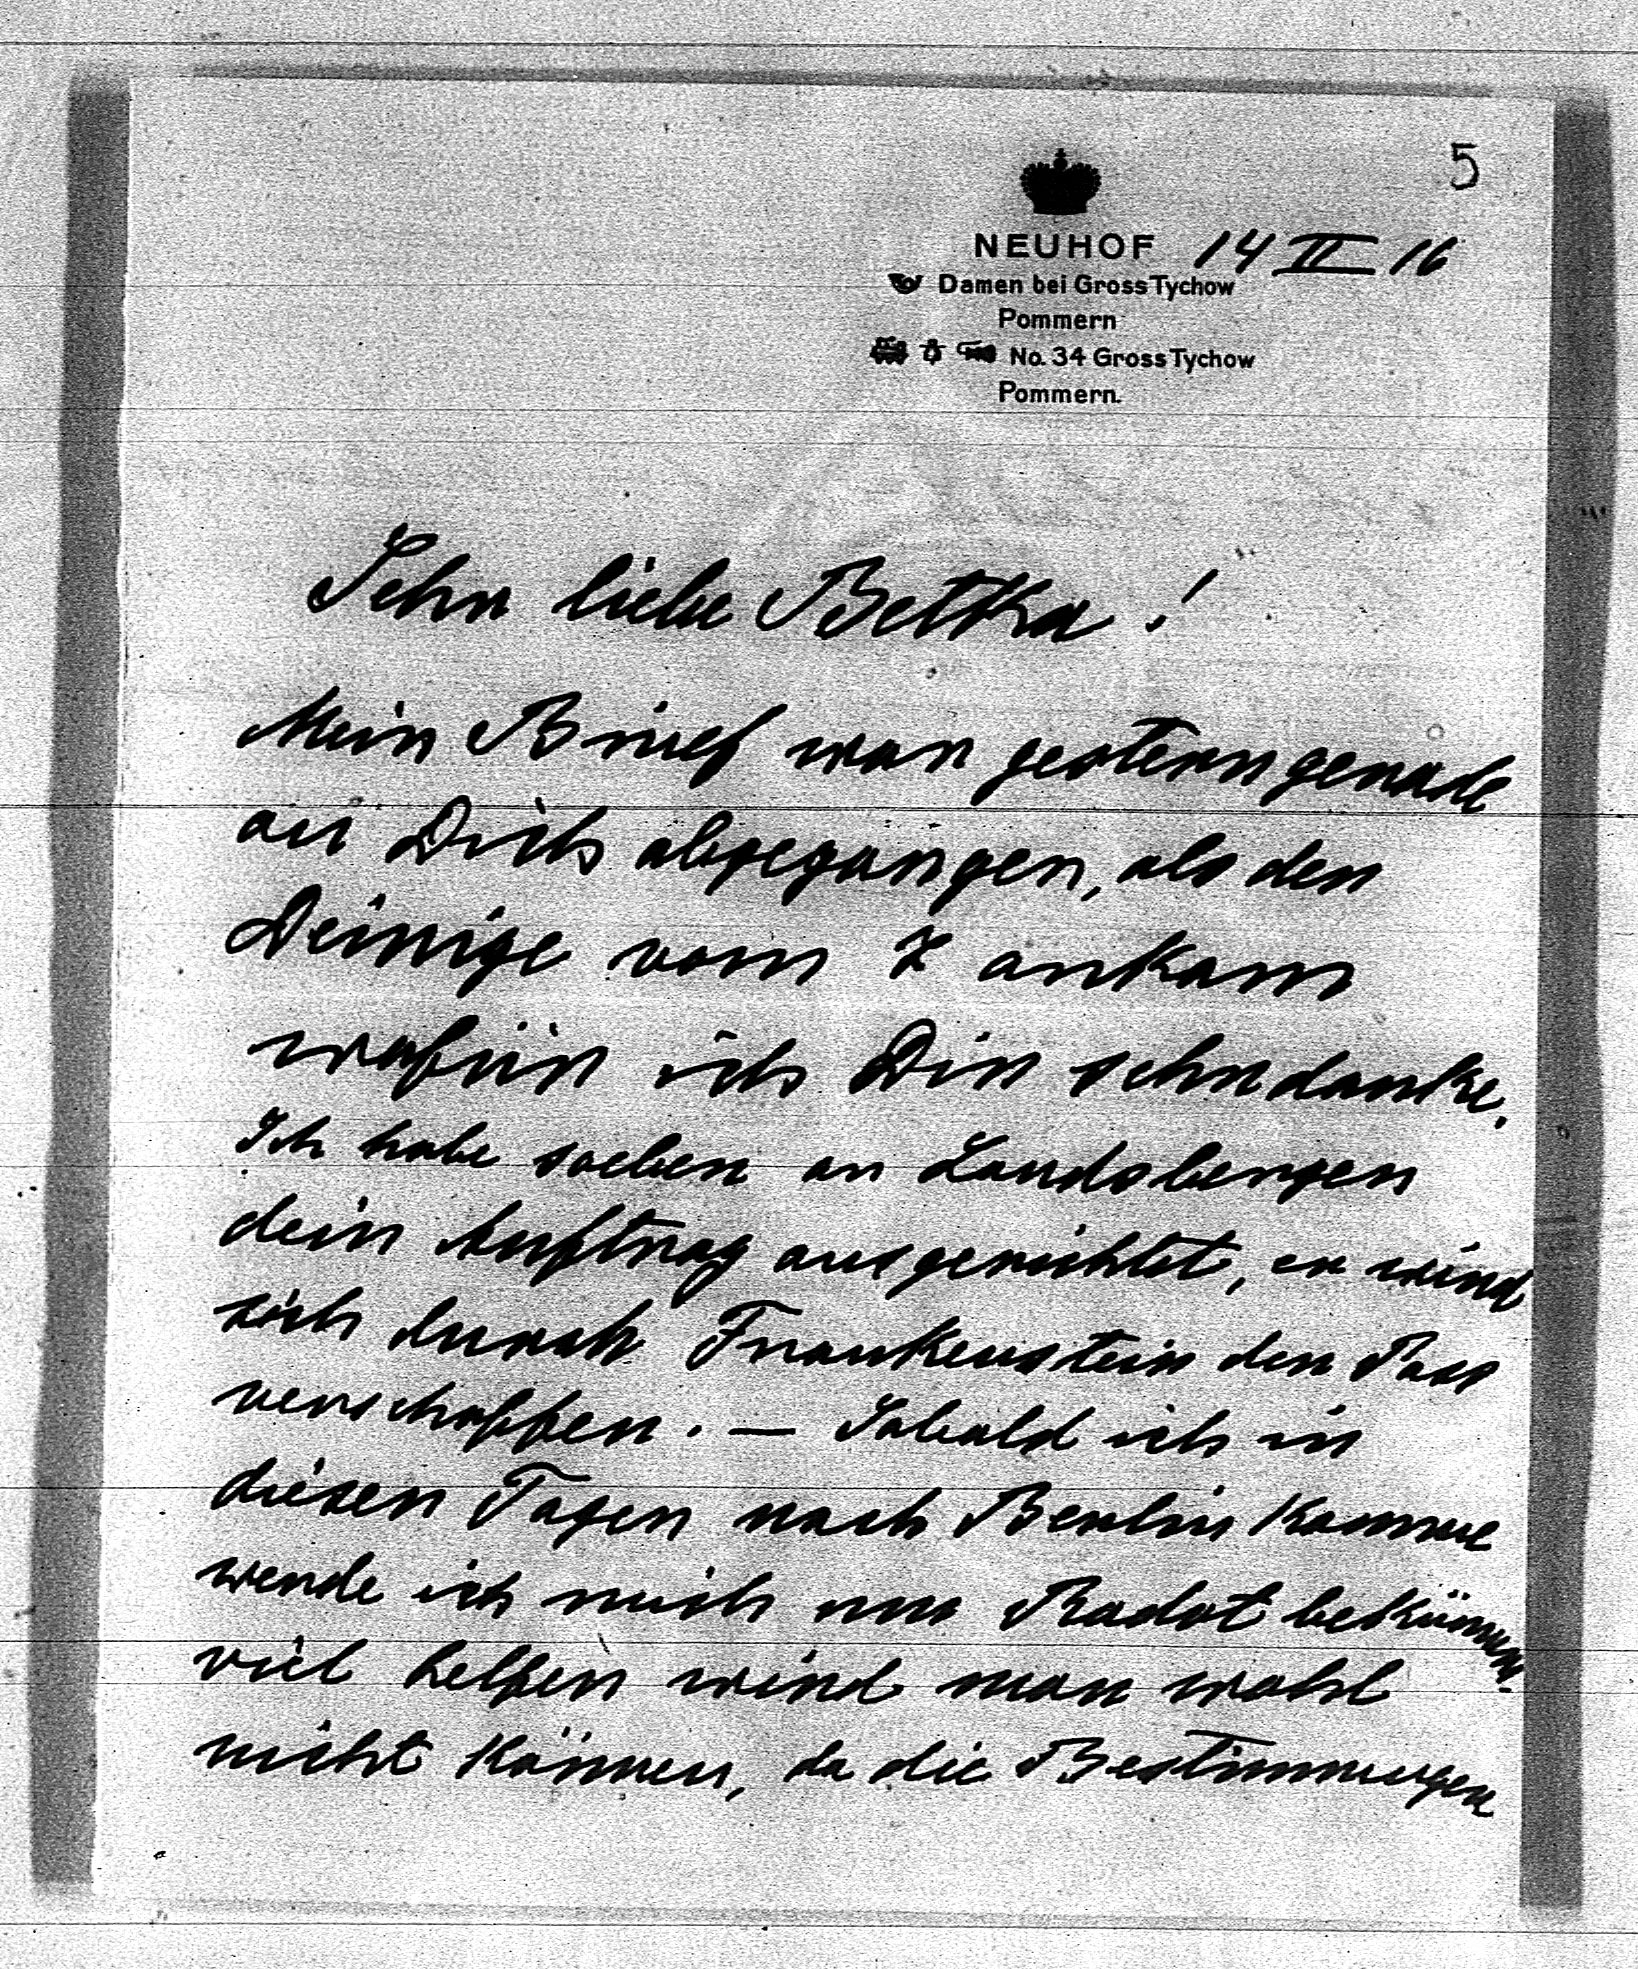 5
NEUHOF 14 II 16
Damen bei Gross Tychow
Pommern
No. 34 Gross Tychow
Pommern.
Sehr liebe Betka!
Mein Brief war gestern gerade
an Dich abgegangen, als der
Deinige vom 7 ankam
wofür ich Dir sehr danke.
Ich habe soeben an Landsberger
dein Auftrag ausgerichtet, er wird
sich durch Frankenstein den Pass
verschaffen. — Sobald ich in
diesen Tagen nach Berlin komme
werde ich mich um Radot bekümmern.
viel helfen wird man wohl
nicht können, da die Bestimmungen